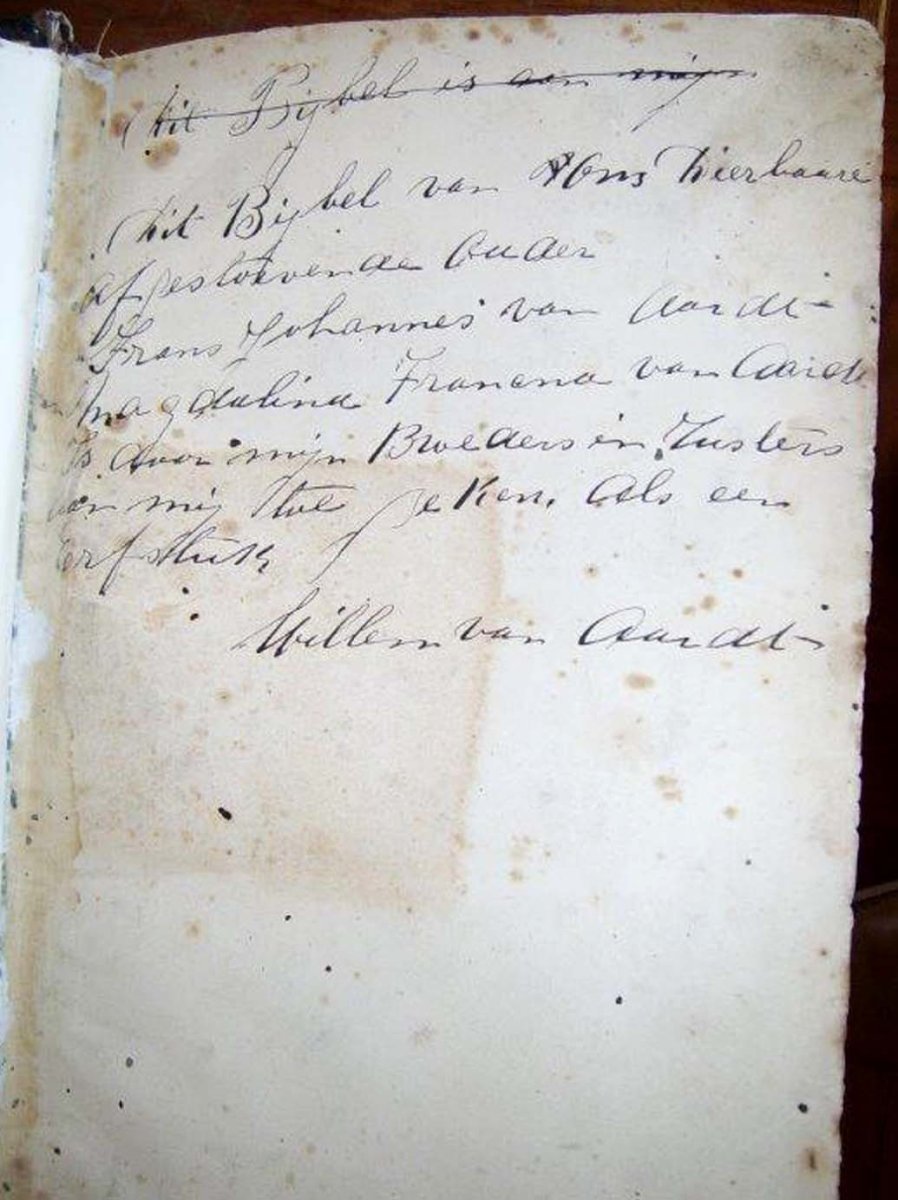 Dit Bijbel is aan mijn
Dit Bijbel van Ons Dierbaare
afgestorvende Ouder
Frans Johannes van Aardt
Magdalina Francna van Aardt
Is door mijn Broeders en Zusters
aan mij toe geken, Als een
Erfstuk
Willem van Aardt